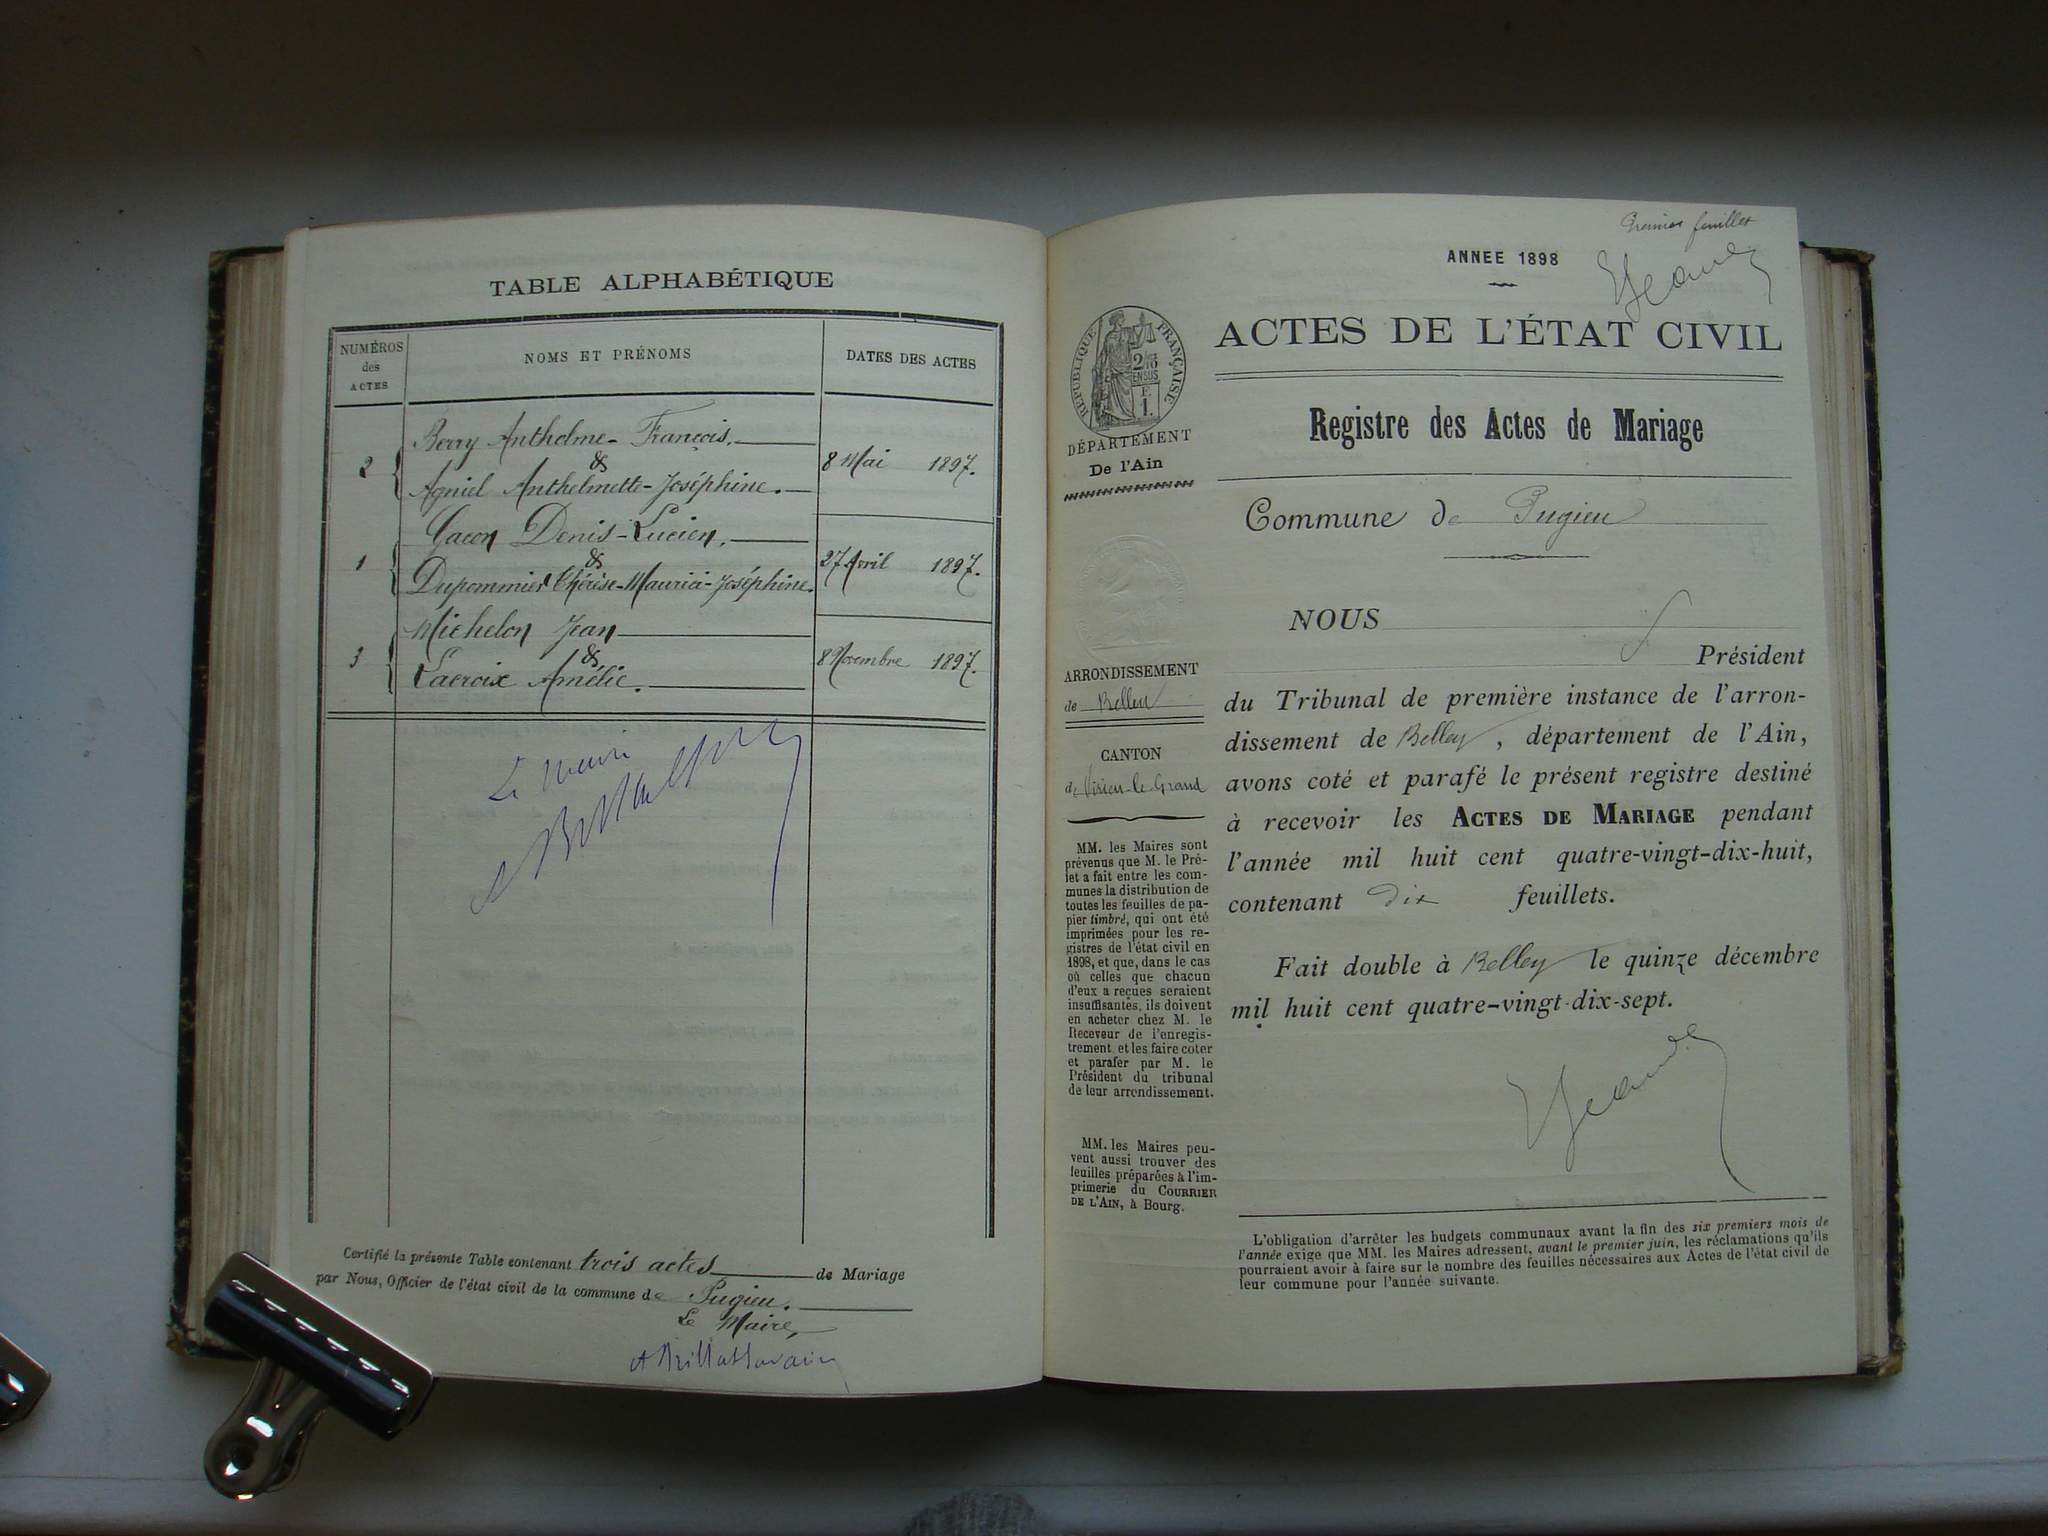 TABLE ALPHABÉTIQUE
NUMÉROS
des
ACTES
NOMS ET PRÉNOMS
DATES DES ACTES
Berry Anthelme-François.
2 & 8 Mai 1897.
Agniel Anthelmette-Joséphine.
Gacon Denis-Lucien.
1 & 27 Avril 1897.
Dupommier Thérèse-Maurice-Joséphine.
Michelon Jean
3 & 8 Novembre 1897.
Lacroix Amélie.
Le Maire
Certifié la présente Table contenant trois actes de Mariage
par Nous, Officier de l'état civil de la commune de Pugieu.
Le Maire,
A Brillat Savarin
Premier feuillet
ANNEE 1898
ACTES DE L'ÉTAT CIVIL
RÉPUBLIQUE FRANÇAISE
DÉPARTEMENT
De l'Ain
Registre des Actes de Mariage
Commune de Pugieu
ARRONDISSEMENT
de Belley
CANTON
de Virieu-le-Grand
MM. les Maires sont
prévenus que M. le Pré-
fet a fait entre les com-
munes la distribution de
toutes les feuilles de pa-
pier timbré, qui ont été
imprimées pour les re-
gistres de l'état civil en
1898, et que, dans le cas
où celles que chacun
d'eux a reçues seraient
insuffisantes, ils doivent
en acheter chez M. le
Receveur de l'enregis-
trement et les faire coter
et parafer par M. le
Président du tribunal
de leur arrondissement.
MM. les Maires peu-
vent aussi trouver des
feuilles préparées à l'im-
primerie du COURRIER
DE L'AIN, à Bourg.
NOUS
Président
du Tribunal de première instance de l'arron-
dissement de Belley, département de l'Ain,
avons coté et parafé le présent registre destiné
à recevoir les ACTES DE MARIAGE pendant
l'année mil huit cent quatre-vingt-dix-huit,
contenant dix feuillets.
Fait double à Belley le quinze décembre
mil huit cent quatre-vingt-dix-sept.
L'obligation d'arrêter les budgets communaux avant la fin des six premiers mois de
l'année exige que MM. les Maires adressent, avant le premier juin, les réclamations qu'ils
pourraient avoir à faire sur le nombre des feuilles nécessaires aux Actes de l'état civil de
leur commune pour l'année suivante.